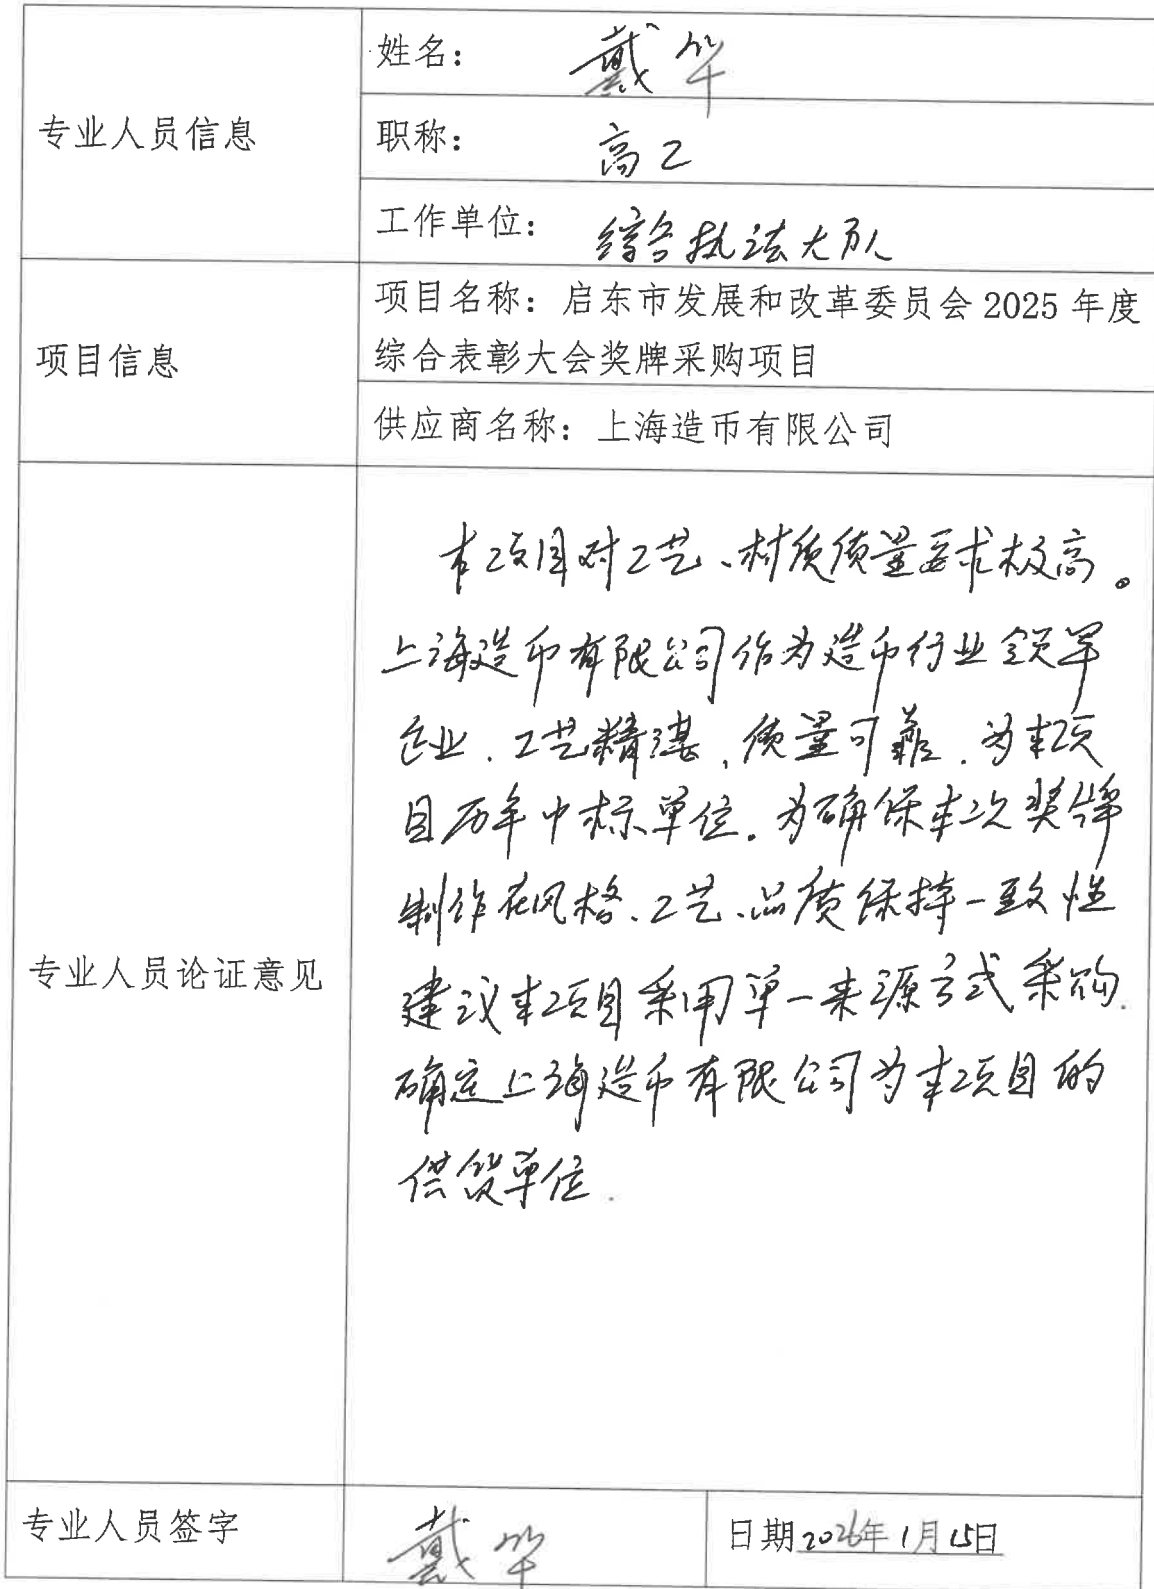 专业人员信息
姓名：戴华
职称：高工
工作单位：综合执法大队
项目信息
项目名称：启东市发展和改革委员会 2025 年度
综合表彰大会奖牌采购项目
供应商名称：上海造币有限公司
专业人员论证意见
本项目对工艺、材质质量要求极高。
上海造币有限公司作为造币行业领军
企业，工艺精湛，质量可靠，为本项
目历年中标单位。为确保本次奖牌
制作在风格、工艺、品质保持一致性
建议本项目采用单一来源方式采购.
确定上海造币有限公司为本项目的
供货单位.
专业人员签字 戴华 日期 2026年 1月 15日